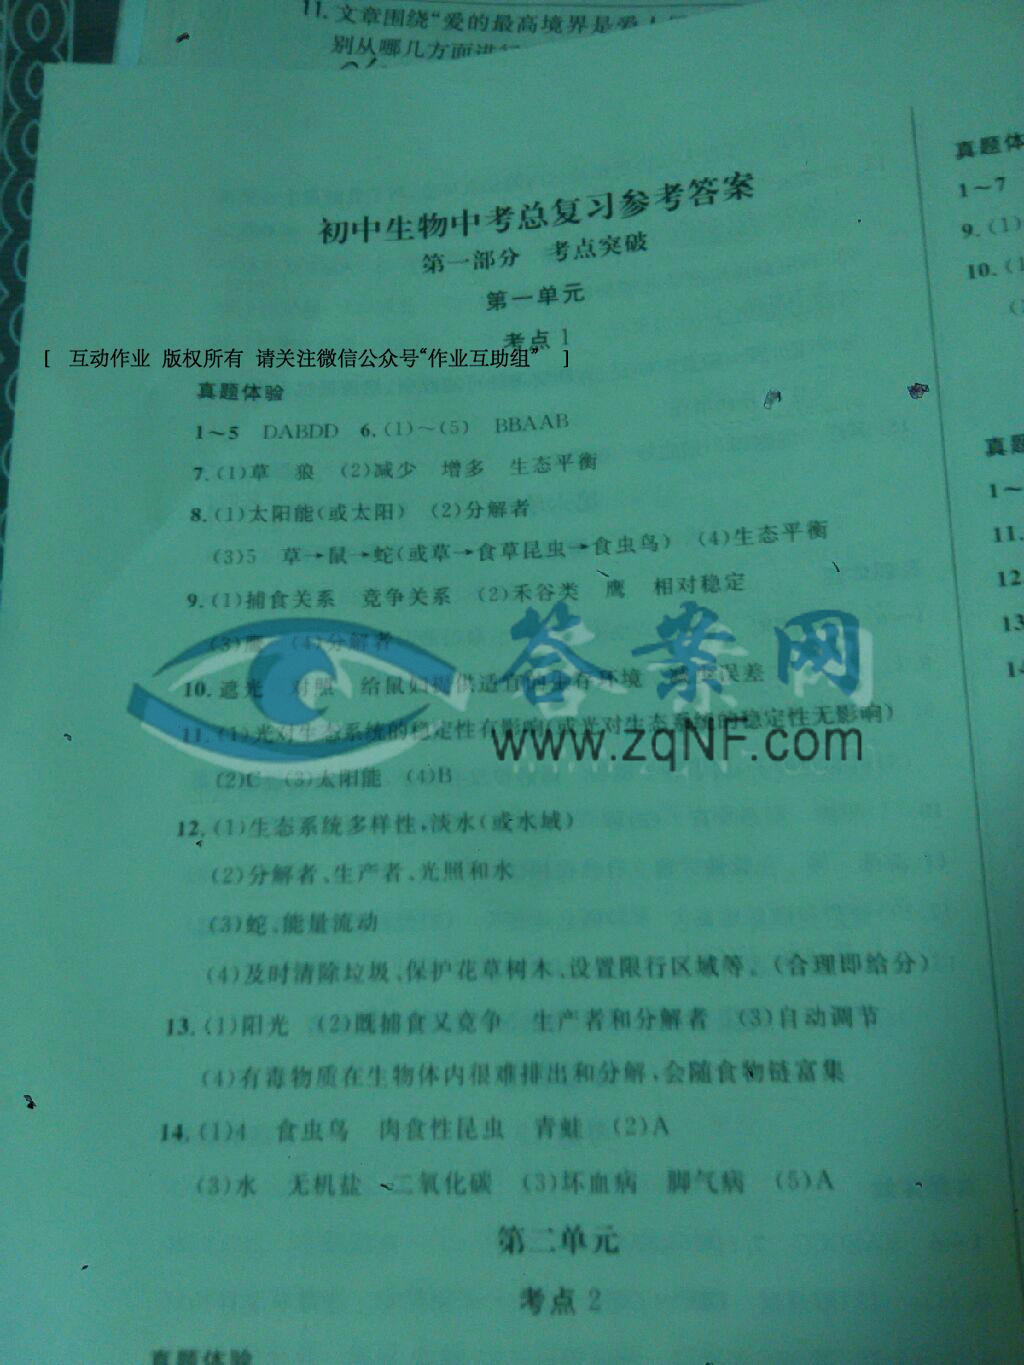 11. 文章围绕“爱的最高境界是爱
别从哪几方面进行
初中生物中考总复习参考答案
第一部分 考点突破
第一单元
考点 1
[ 互动作业 版权所有 请关注微信公众号“作业互助组” ]
真题体验
1～5 DABDD 6.(1)～(5) BBAAB
7.(1)草 狼 (2)减少 增多 生态平衡
8.(1)太阳能(或太阳) (2)分解者
(3)5 草→鼠→蛇(或草→食草昆虫→食虫鸟) (4)生态平衡
9.(1)捕食关系 竞争关系 (2)禾谷类 鹰 相对稳定
(3)鹰 (4)分解者
10.遮光 对照 给鼠妇提供适宜的生存环境 减少误差
11.(1)光对生态系统的稳定性有影响(或光对生态系统的稳定性无影响)
(2)C (3)太阳能 (4)B
12.(1)生态系统多样性,淡水(或水域)
(2)分解者、生产者、光照和水
(3)蛇、能量流动
(4)及时清除垃圾、保护花草树木、设置限行区域等。(合理即给分)
13.(1)阳光 (2)既捕食又竞争 生产者和分解者 (3)自动调节
(4)有毒物质在生物体内很难排出和分解,会随食物链富集
14.(1)4 食虫鸟 肉食性昆虫 青蛙 (2)A
(3)水 无机盐 二氧化碳 (3)坏血病 脚气病 (5)A
第二单元
考点 2
真题体验
答案网
www.zqNF.com
真题体
1～7
9.(1)
10.(1
真题
1～
11.
12.
13
14